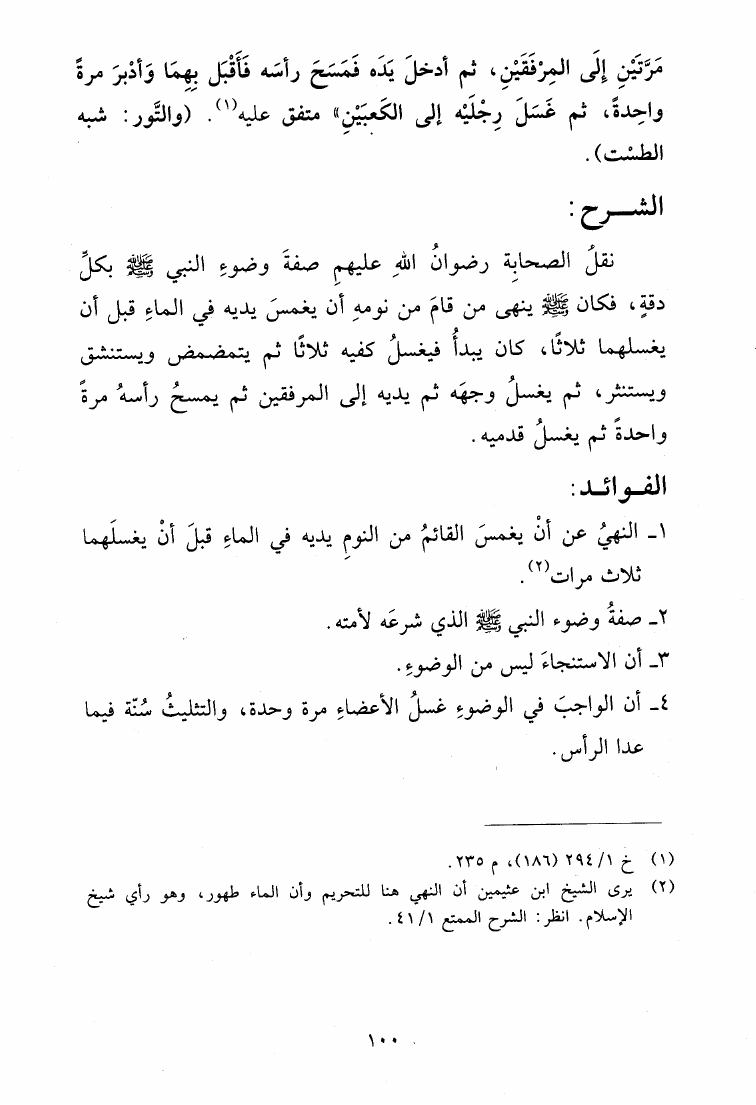 مَرَّتَيْنِ إِلَى المِرْفَقَيْنِ، ثم أدخلَ يَدَه فَمَسَحَ رأسَه فَأَقْبَل بِهِمَا وَأَدْبرَ مرةً
واحِدةً، ثم غَسَلَ رِجْلَيْه إلى الكَعبَيْنِ» متفق عليه(١). (والتَّور: شبه
الطسْت).
الشــرح:
نقلُ الصحابة رضوانُ اللهِ عليهم صفةَ وضوءِ النبي ﷺ بكلِّ
دقةٍ، فكان ﷺ ينهى من قامَ من نومهِ أن يغمسَ يديه في الماءِ قبل أن
يغسلهما ثلاثًا، كان يبدأُ فيغسلُ كفيه ثلاثًا ثم يتمضمض ويستنشق
ويستنثر، ثم يغسلُ وجهَه ثم يديه إلى المرفقين ثم يمسحُ رأسهُ مرةً
واحدةً ثم يغسلُ قدميه.
الفـوائـد:
١ـ النهيُ عن أنْ يغمسَ القائمُ من النومِ يديه في الماءِ قبلَ أنْ يغسلَهما
ثلاث مرات(٢).
٢ـ صفةُ وضوء النبي ﷺ الذي شرعَه لأمته.
٣ـ أن الاستنجاءَ ليس من الوضوءِ.
٤ـ أن الواجبَ في الوضوءِ غسلُ الأعضاءِ مرة وحدة، والتثليثُ سُنّة فيما
عدا الرأس.
(١) خ ١/ ٢٩٤ (١٨٦)، م ٢٣٥.
(٢) يرى الشيخ ابن عثيمين أن النهي هنا للتحريم وأن الماء طهور، وهو رأي شيخ
الإسلام. انظر: الشرح الممتع ١/ ٤١.
١٠٠